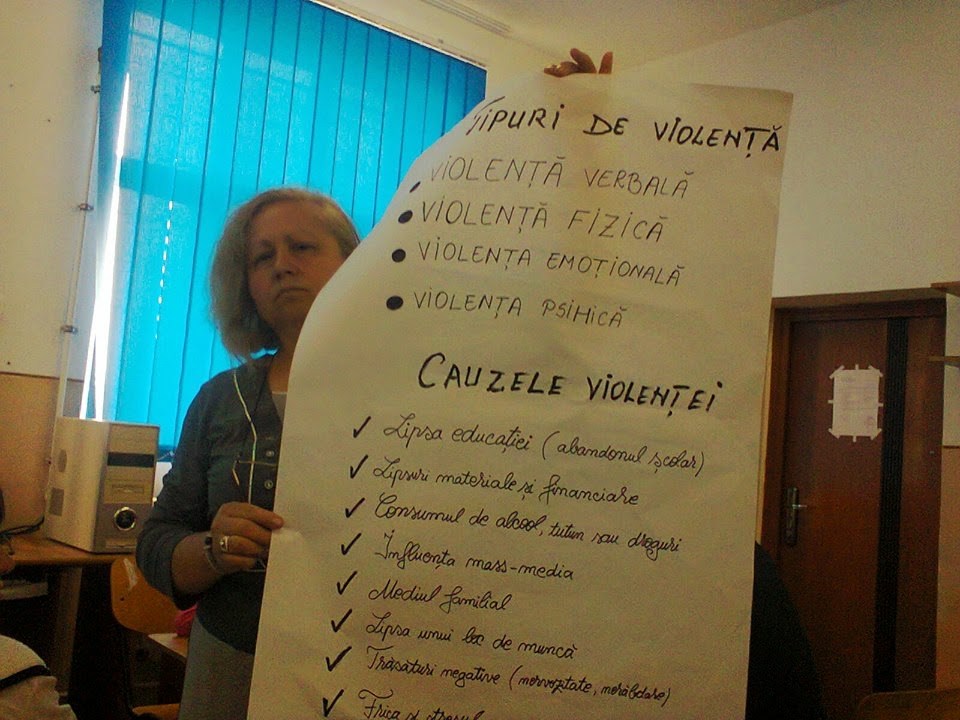 TIPURI DE VIOLENȚĂ
VIOLENȚĂ VERBALĂ
• VIOLENȚĂ FIZICĂ
• VIOLENȚA EMOȚIONALĂ
• VIOLENȚA PSIHICĂ
CAUZELE VIOLENȚEI
✓ Lipsa educației (abandonul școlar)
✓ Lipsuri materiale și financiare
✓ Consumul de alcool, tutun sau droguri
✓ Influența mass-media
✓ Mediul familial
✓ Lipsa unui loc de muncă
✓ Trăsături negative (nervozitate, nerăbdare)
✓ Frica și stresul